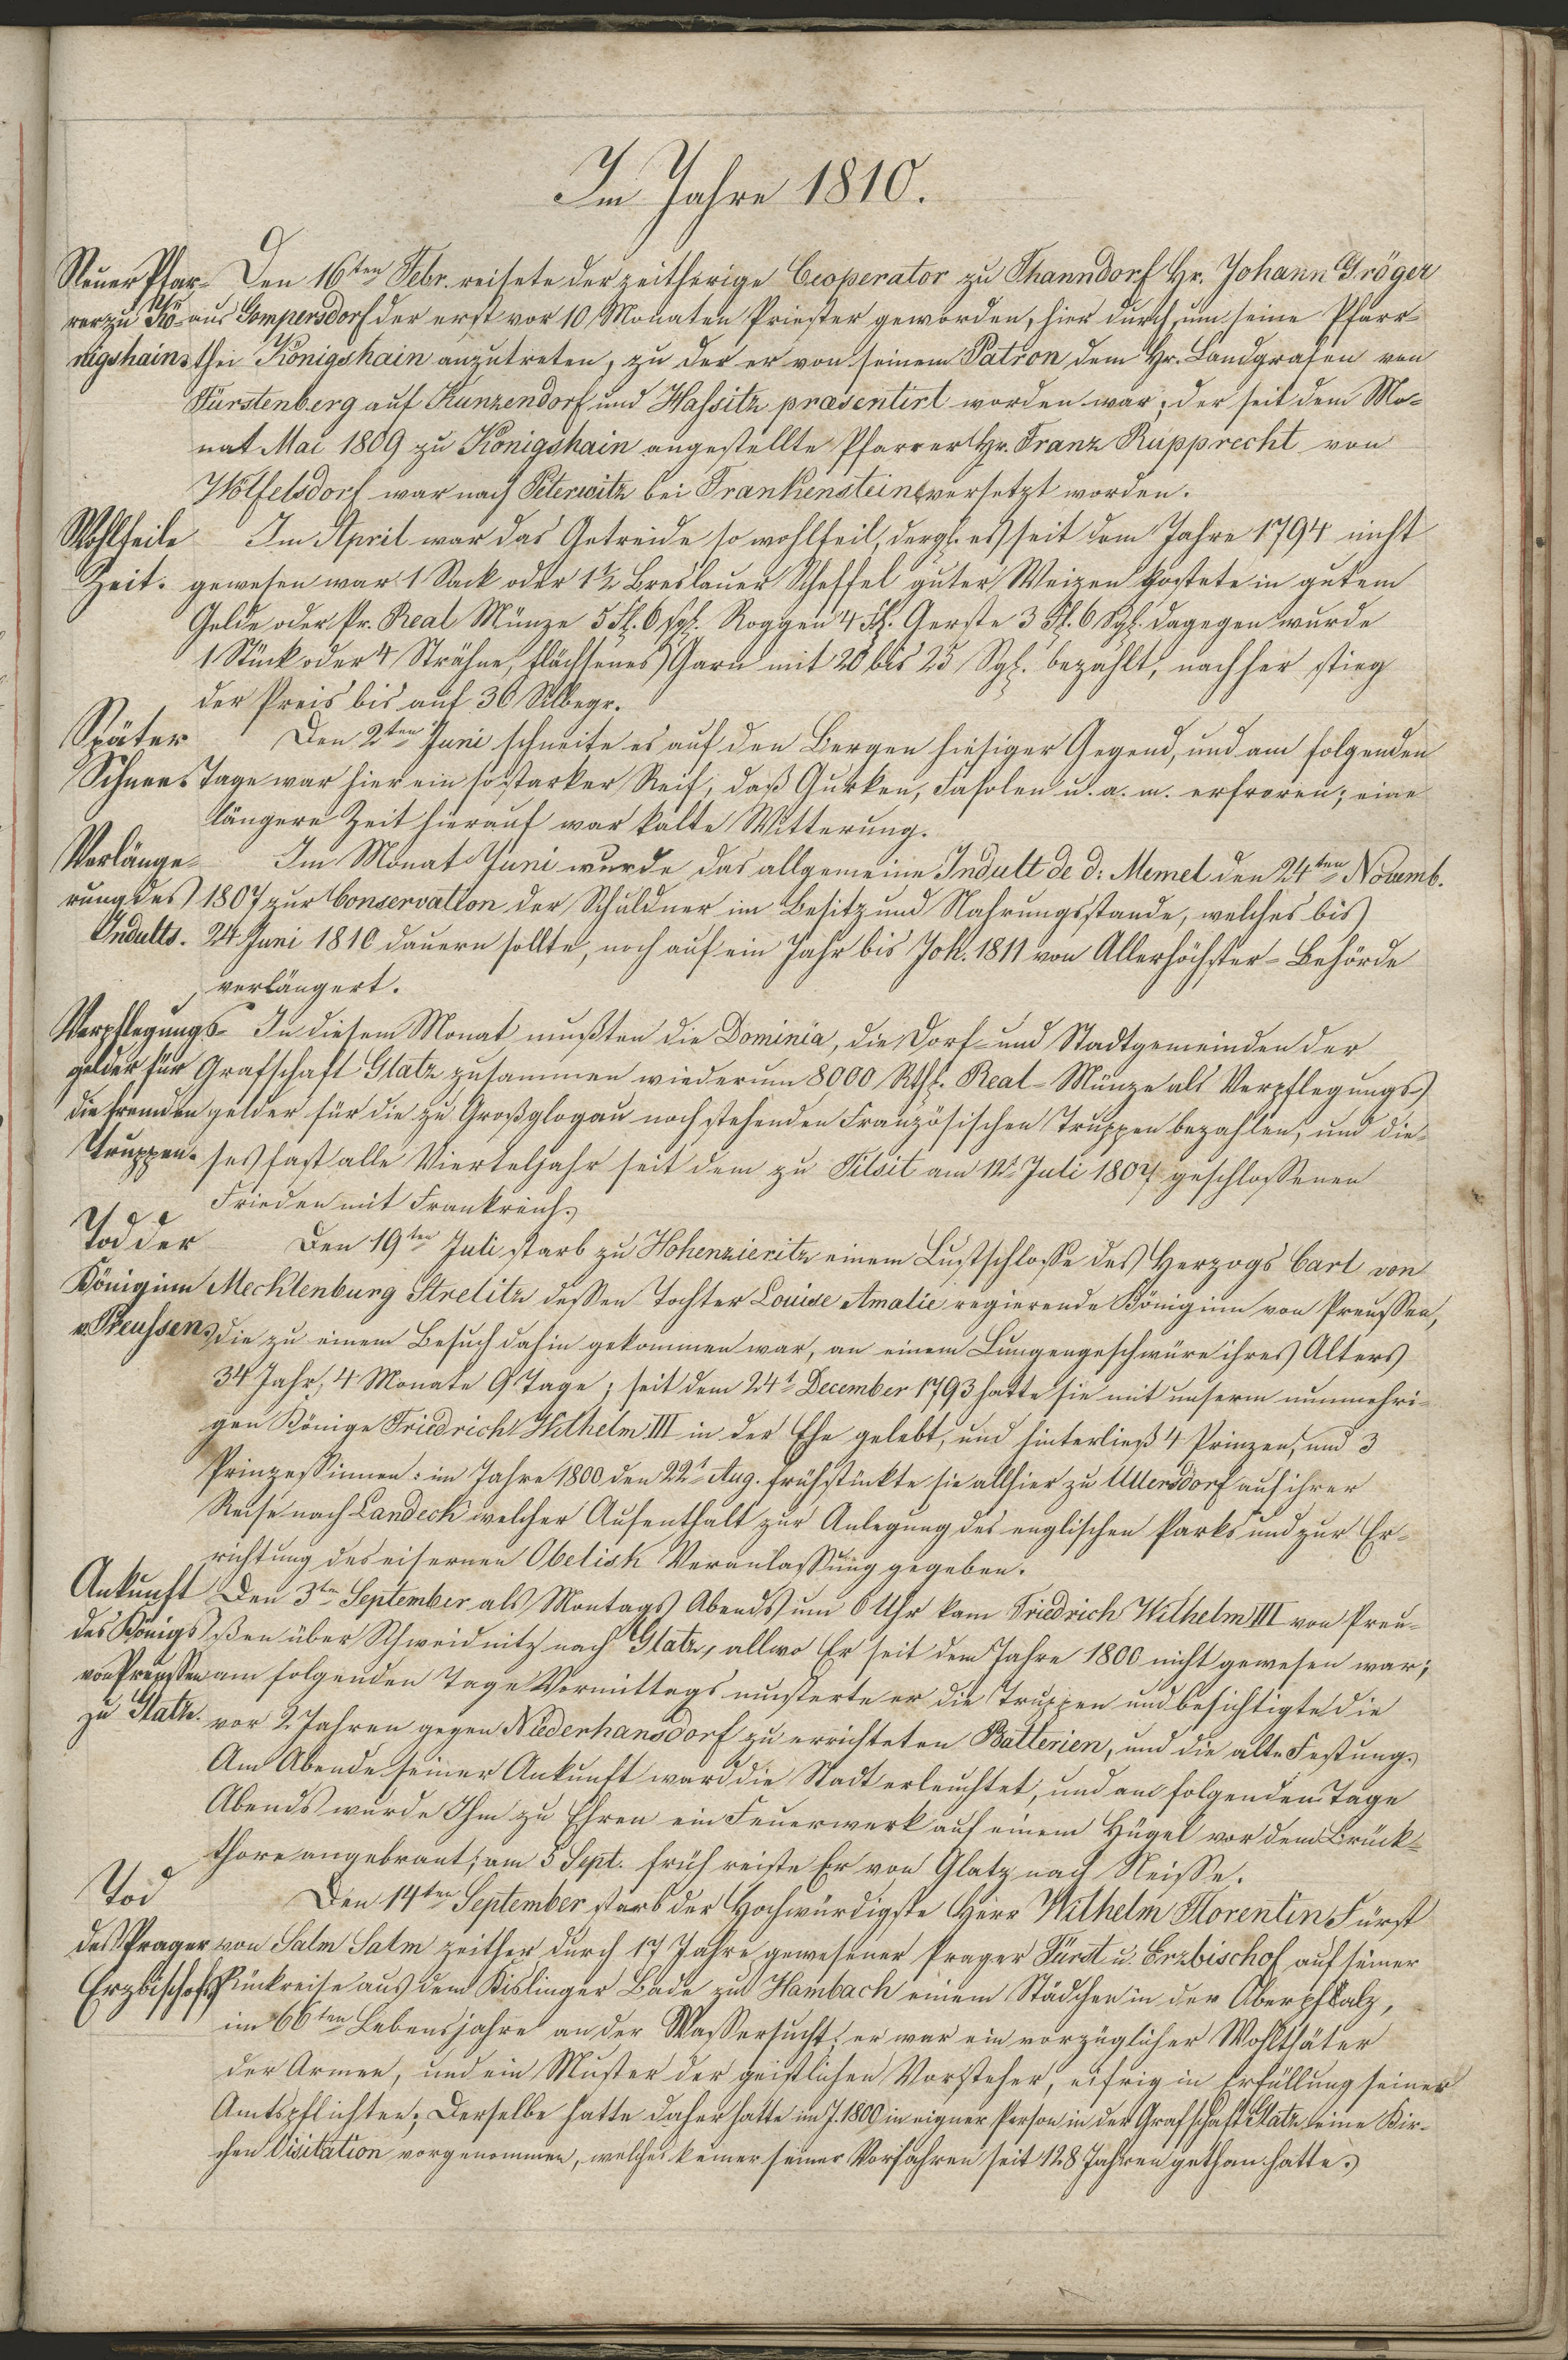 Im Jahre 1810.
Neuer Pfar- Den 16ten Febr. reisete der zeitherige Cooperator zu Thanndorf Hr. Johann Gröger
rer zu Kö- aus Gompersdorf der erst vor 10 Monaten Priester geworden, hier durch, um seine Pfarr-
nigshain. thei Königshain anzutreten, zu der er von seinem Patron dem Hr. Landgrafen von
Fürstenberg auf Kunzendorf und Hassitz præsentirt worden war; der seit dem Mo-
nat Mai 1809 zu Königshain angestellte Pfarrer Hr. Franz Rupprecht von
Wölfelsdorf war nach Peterwitz bei Frankenstein versetzt worden.
Wohlfeile Im April war das Getreide so wohlfeil, dergl. es seit dem Jahre 1794 nicht
Zeit. gewesen war 1 Sack oder 1½ Breslauer Scheffel guter Weizen kostete in gutem
Gelde oder Pr. Real Münze 5 Fl. 6 sgl. Roggen 4 Fl. Gerste 3 Fl. 6 Sgl. dagegen wurde
1 Stück oder 4 Strähne, flächsenes Garn mit 20 bis 25 Sgl. bezahlt, nachher stieg
der Preis bis auf 30 Silbegr.
Später Den 2ten Juni schneite es auf den Bergen hiesiger Gegend, und am folgenden
Schnee. Tage war hier ein so starker Reif, daß Gurken, Fasolen u. a. m. erfroren; eine
längere Zeit hierauf war kalte Witterung.
Verlänge- Im Monat Juni wurde das allgemeine Indult de d: Memel den 24ten Novemb.
rung des 1807 zur Conservation der Schuldner im Besitz und Nahrungsstande, welches bis
Indults. 24 Juni 1810 dauern sollte, noch auf ein Jahr bis Joh. 1811 von Allerhöchster-Behörde
verlängert.
Verpflegungs- In diesem Monat mußten die Dominia, die Dorf- und Stadtgemeinden der
gelder für Grafschaft Glatz zusammen wiederum 8000 Rthl. Real-Münze als Verpflegungs-
die fremden gelder für die zu Großglogau noch stehenden Französischen Truppen bezahlen, und die-
Truppen. ses fast alle Vierteljahr seit dem zu Tilsit am 12t Juli 1807 geschlossenen
Frieden mit Frankreich.
Tod der Den 19ten Juli starb zu Hohenzieritz einem Lustschlosse des Herzogs Carl von
Königinn Mecklenburg Strelitz dessen Tochter Louise Amalie regierende Königinn von Preussen,
v. Preussen. die zu einem Besuch dahin gekommen war, an einem Lungengeschwüre ihres Alters
34 Jahr, 4 Monate 9 Tage; seit dem 24t December 1793 hatte sie mit unserm nunmehri-
gen Könige Friedrich Wilhelm III in der Ehe gelebt, und hinterließ 4 Prinzen, und 3
Prinzessinnen: im Jahre 1800 den 22t Aug. frühstückte sie allhier zu Ullersdorf auf ihrer
Reise nach Landeck welcher Aufenthalt zur Anlegung des englischen Parks und zur Er-
richtung des eisernen Obelisk Veranlassung gegeben.
Ankunft Den 3ten September als Montags Abends um 6 Uhr kam Friedrich Wilhelm III von Preu-
des Königs ßen über Schweidnitz nach Glatz, allwo Er seit dem Jahre 1800 nicht gewesen war;
von Preussen am folgenden Tage Vormittags musterte er die Truppen und besichtigte die
zu Glatz. vor 2 Jahren gegen Niederhansdorf zu errichteten Batterien, und die alte Festung.
Am Abende seiner Ankunft ward die Stadt erleuchtet, und am folgenden Tage
Abends wurde Ihm zu Ehren ein Feuerwerk auf einem Hügel vor dem Brück-
thore angebrant; am 5 Sept. früh reiste Er von Glatz nach Neisse.
Tod Den 14ten September starb der Hochwürdigste Herr Wilhelm Florentin Fürst
des Prager von Salm Salm zeither durch 17 Jahre gewesener Prager Fürst u. Erzbischof auf seiner
Erzbischofs Rückreise aus dem Kislinger Bade zu Hambach einem Städchen in der Oberpfalz,
im 66ten Lebensjahre an der Wassersucht; er war ein vorzüglicher Wohlthäter
der Armen, und ein Muster der geistlichen Vorsteher, eifrig in Erfüllung seiner
Amtspflichten; Derselbe hatte daher hatte im J. 1800 in eigner Person in der Grafschaft Glatz eine Kir-
chen Visitation vorgenommen, welches keiner seiner Vorfahren seit 128 Jahren gethan hatte.